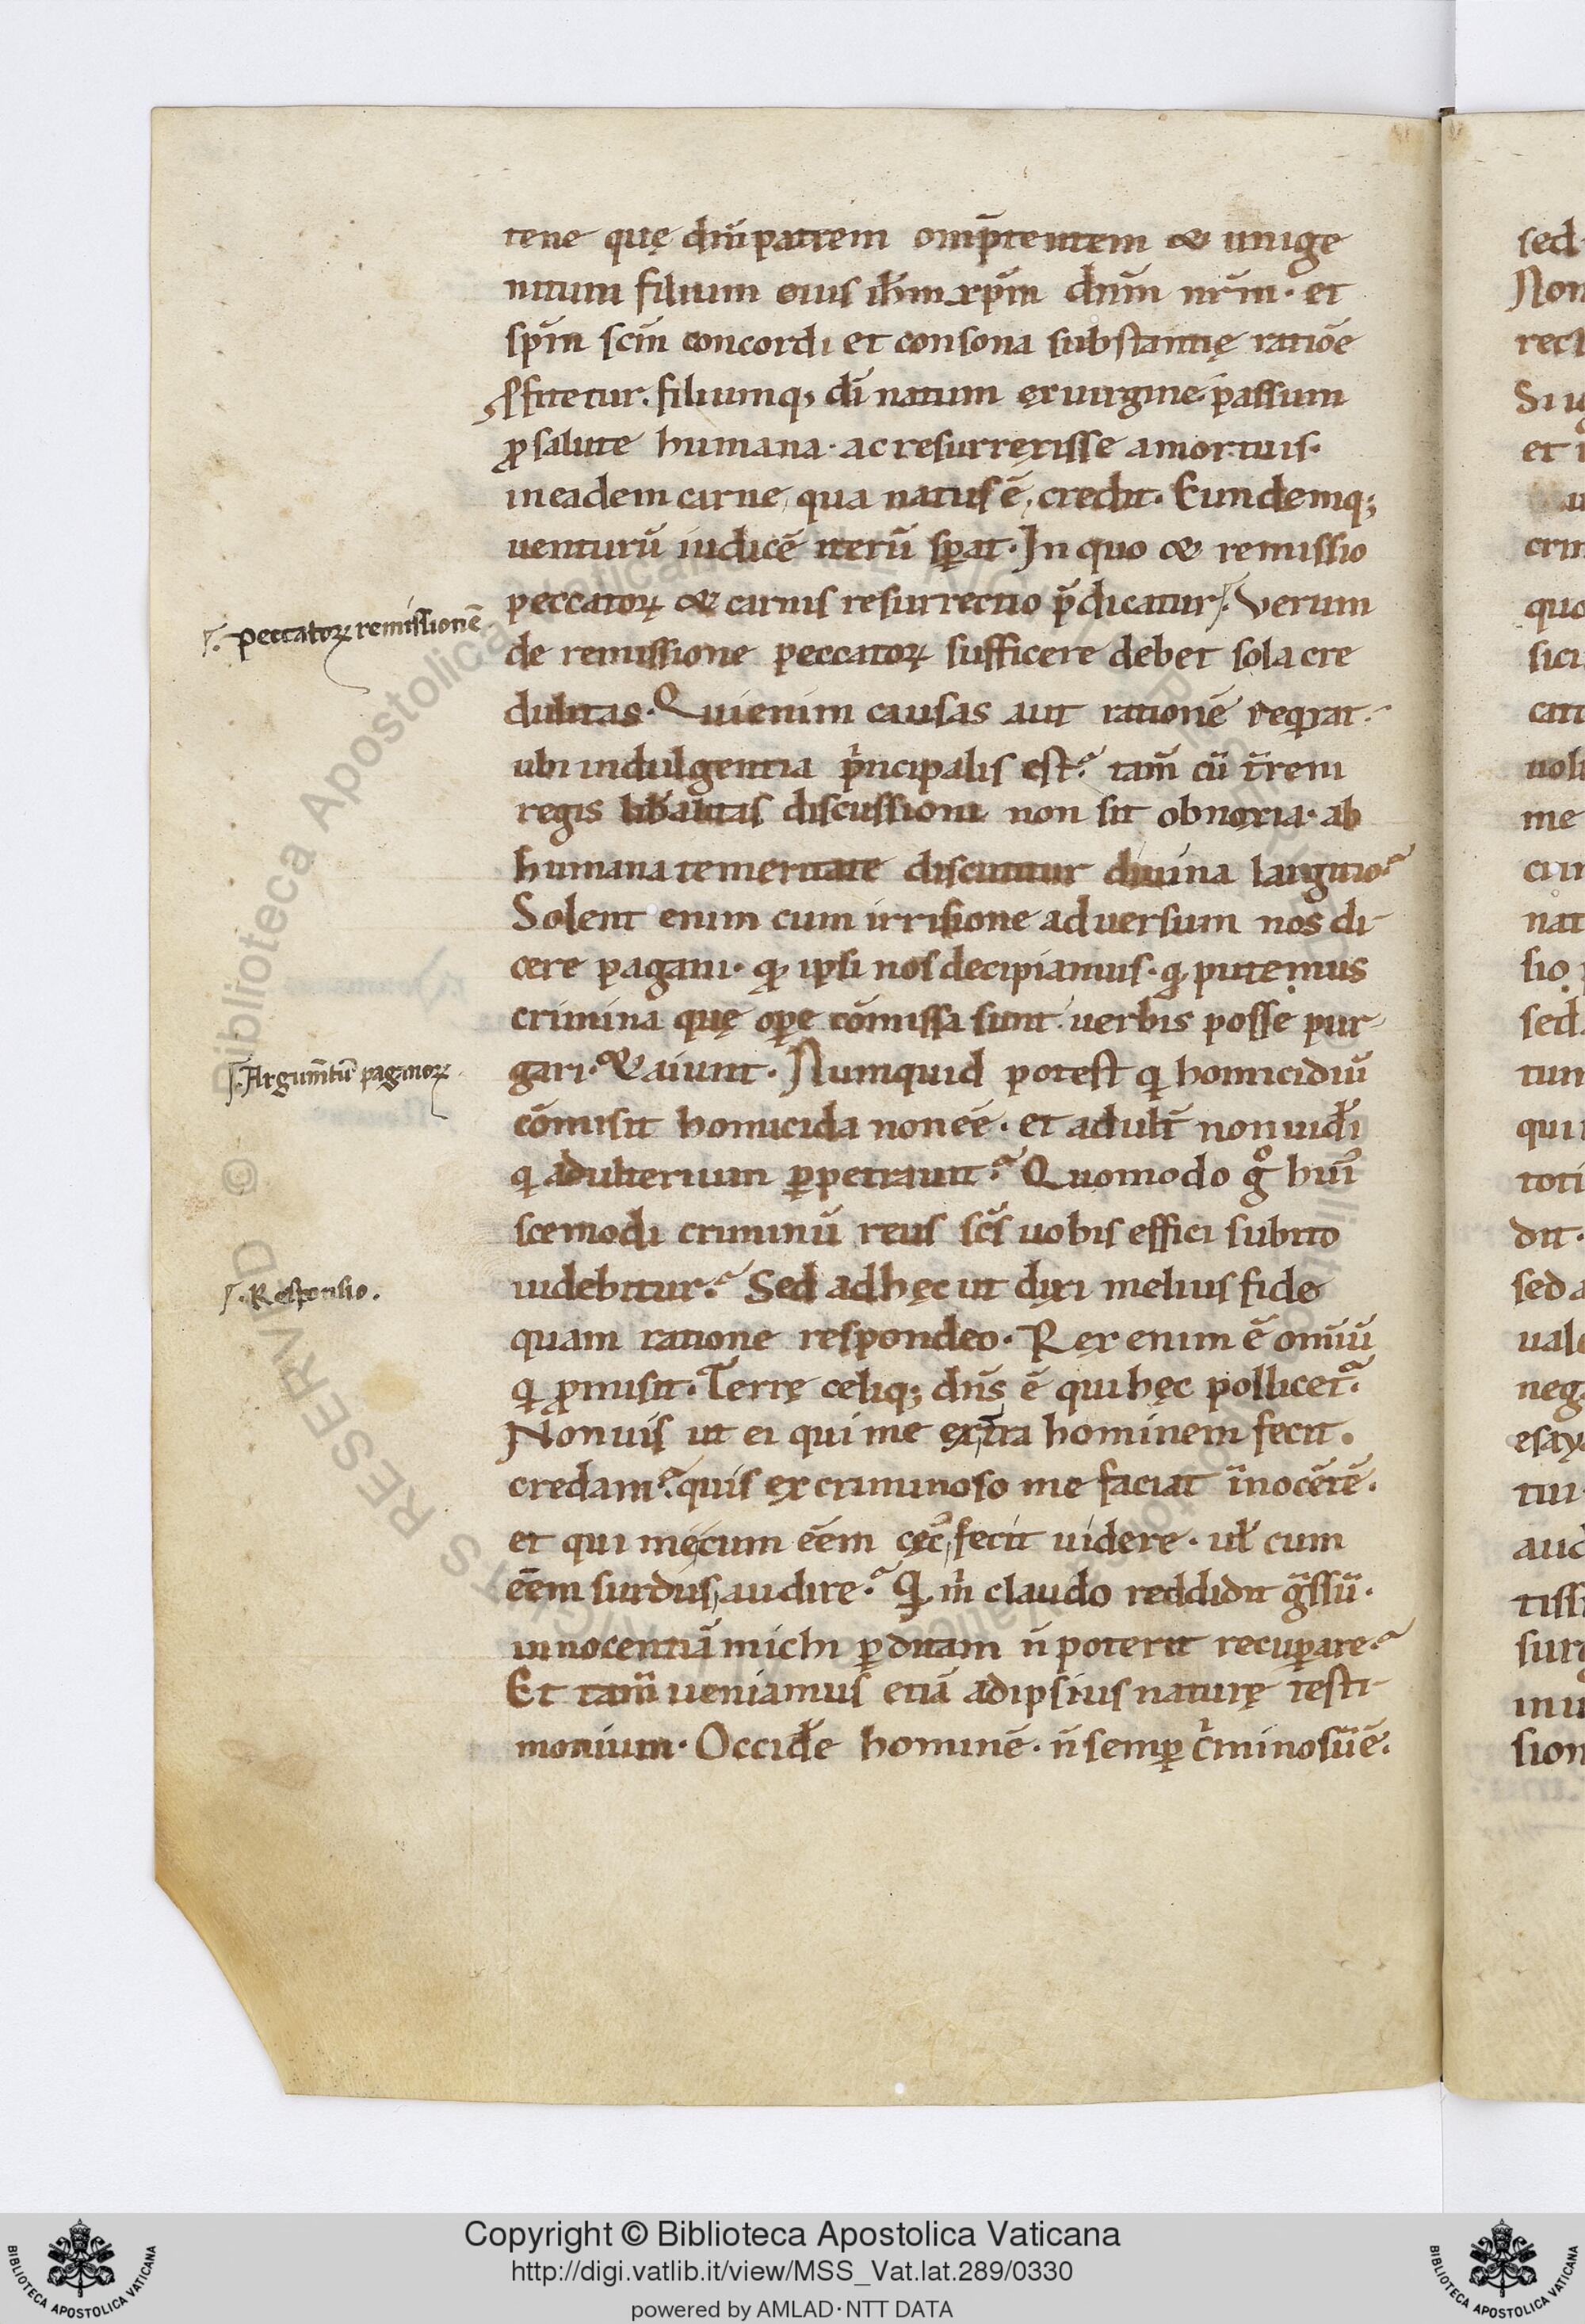 tene quę dm̄ patrem omp̄tentem & unige
nitum filium eius ih̄m xp̄m dn̄m nr̄m· et
sp̄m sc̄m concordi et consona substantię ratiōe
ꝓfitetur· filiumq; dī natum ex uirgine· passum
ꝓ salute humana· ac resurrexisse a mortuis·
in eadem carne, qua natus ē, credit· Eundemq;
uenturū iudicē iterū sꝑat· In quo & remissio
peccatoꝝ & carnis resurrectio p̄dicatur· Verum
de remissione peccatoꝝ sufficere debet sola cre
dulitas· Qui enim causas aut rationē req̇rat·
ubi indulgentia ṗncipalis est? tam̄ cū t̄reni
regis lib̄alitas discussioni non sit obnoxia· ab
humana temeritate discutitur diuina largitio?
Solent enim cum irrisione aduersum nos di-
cere pagani· ꝙ ipsi nos decipiamus· ꝗ putemus
crimina quę oꝑe cōmissa sunt uerbis posse pur-
gari· & aiunt· Numquid potest ꝗ homicidiū
cōmisit homicida non eē· et adult̄ non uidr̄i
ꝗ adulterium ꝑpetrauit? Quomodo gͦ hui᷒
scemodi criminū reus sc̄s uobis effici subito
uidebitur? Sed ad hęc ut dixi melius fide
quam ratione respondeo· Rex enim ē omīū
ꝗ ꝓmisit· Terrę celiq; dn̄s ē qui hęc pollicet᷑·
Non uis ut ei qui me ex t̄ra hominem fecit·
credam? quis ex criminoso me faciat īnocētē·
et qui me cum eēm cęc᷒ fecit uidere· ul̄ cum
eēm surdus, audire? Ꝗ ṁ claudo reddidit gͣssū·
innocentiā michi ꝑditam n̄ poterit recuꝑare?
Et tam̄ ueniamus etiā ad ipsius naturę testi-
monium· Occidēe hominē· n̄ semꝑ ċminosū ē·
peccatoꝝ remissionē
Argumt̄ū paganoꝝ
Responsio.
sed
Non
rect
Si u
et
crim
quo
sicu
cati
uolu
me
cum
nat
sio
sed
tum
qui
toti
dit·
sed a
uale
neg
esay
tui
aud
tissi
surd
in u
sion
Copyright © Biblioteca Apostolica Vaticana
http://digi.vatlib.it/view/MSS_Vat.lat.289/0330
powered by AMLAD·NTT DATA
BIBLIOTECA APOSTOLICA VATICANA
BIBLIOTECA APOSTOLICA VATICANA